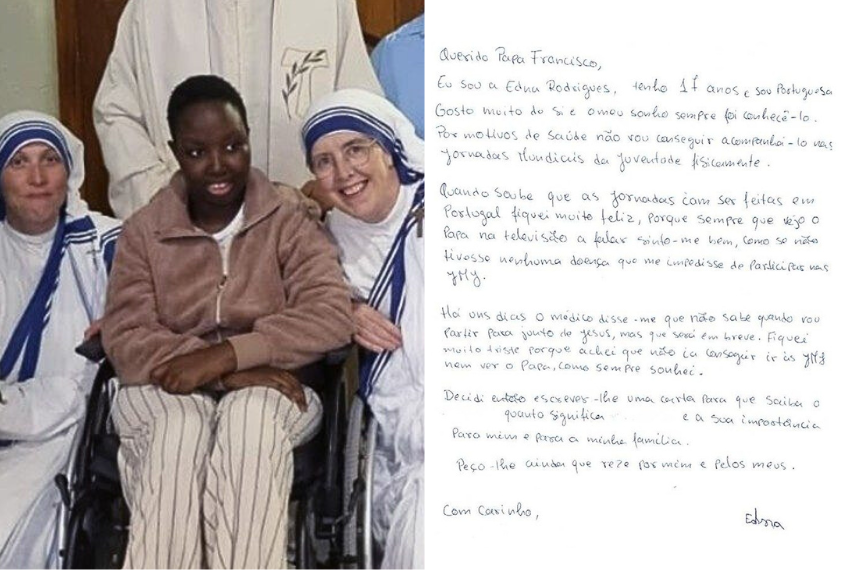 Querido Papa Francisco,
Eu sou a Edna Rodrigues, tenho 17 anos e sou Portuguesa
Gosto muito de si e o meu sonho sempre foi conhecê-lo.
Por motivos de saúde não vou conseguir acompanhá-lo nas
Jornadas Mundiais da Juventude fisicamente.
Quando soube que as jornadas iam ser feitas em
Portugal fiquei muito feliz, porque sempre que vejo o
Papa na televisão a falar sinto-me bem, como se não
tivesse nenhuma doença que me impedisse de participar nas
JMJ.
Há uns dias o médico disse-me que não sabe quando vou
partir para junto de Jesus, mas que será em breve. Fiquei
muito triste porque achei que não ia conseguir ir às JMJ
nem ver o Papa, como sempre sonhei.
Decidi então escrever-lhe uma carta para que saiba o
quanto significa e a sua importância
para mim e para a minha família.
Peço-lhe ainda que reze por mim e pelos meus.
Com Carinho,
Edna